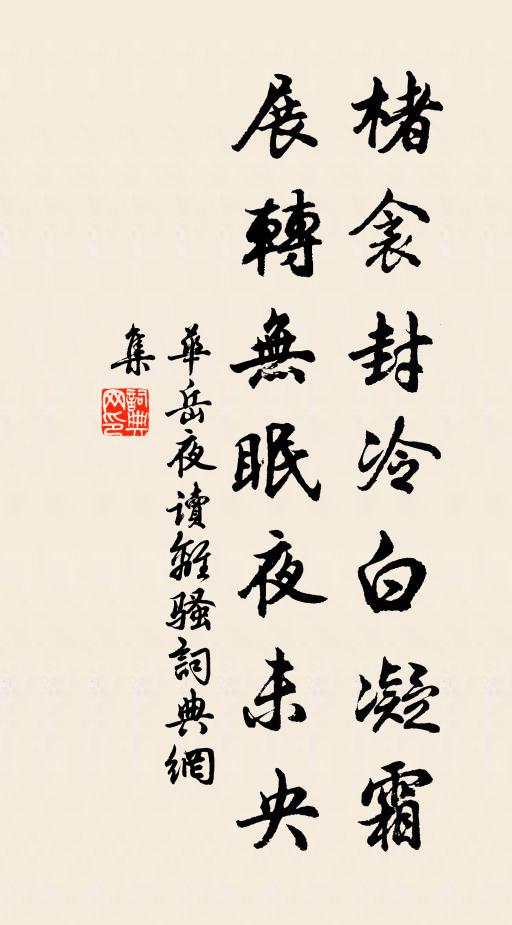 楮衾封冷白凝霜
展轉無眠夜未央
華岳夜讀離騷詞典網
集
詞典
网印